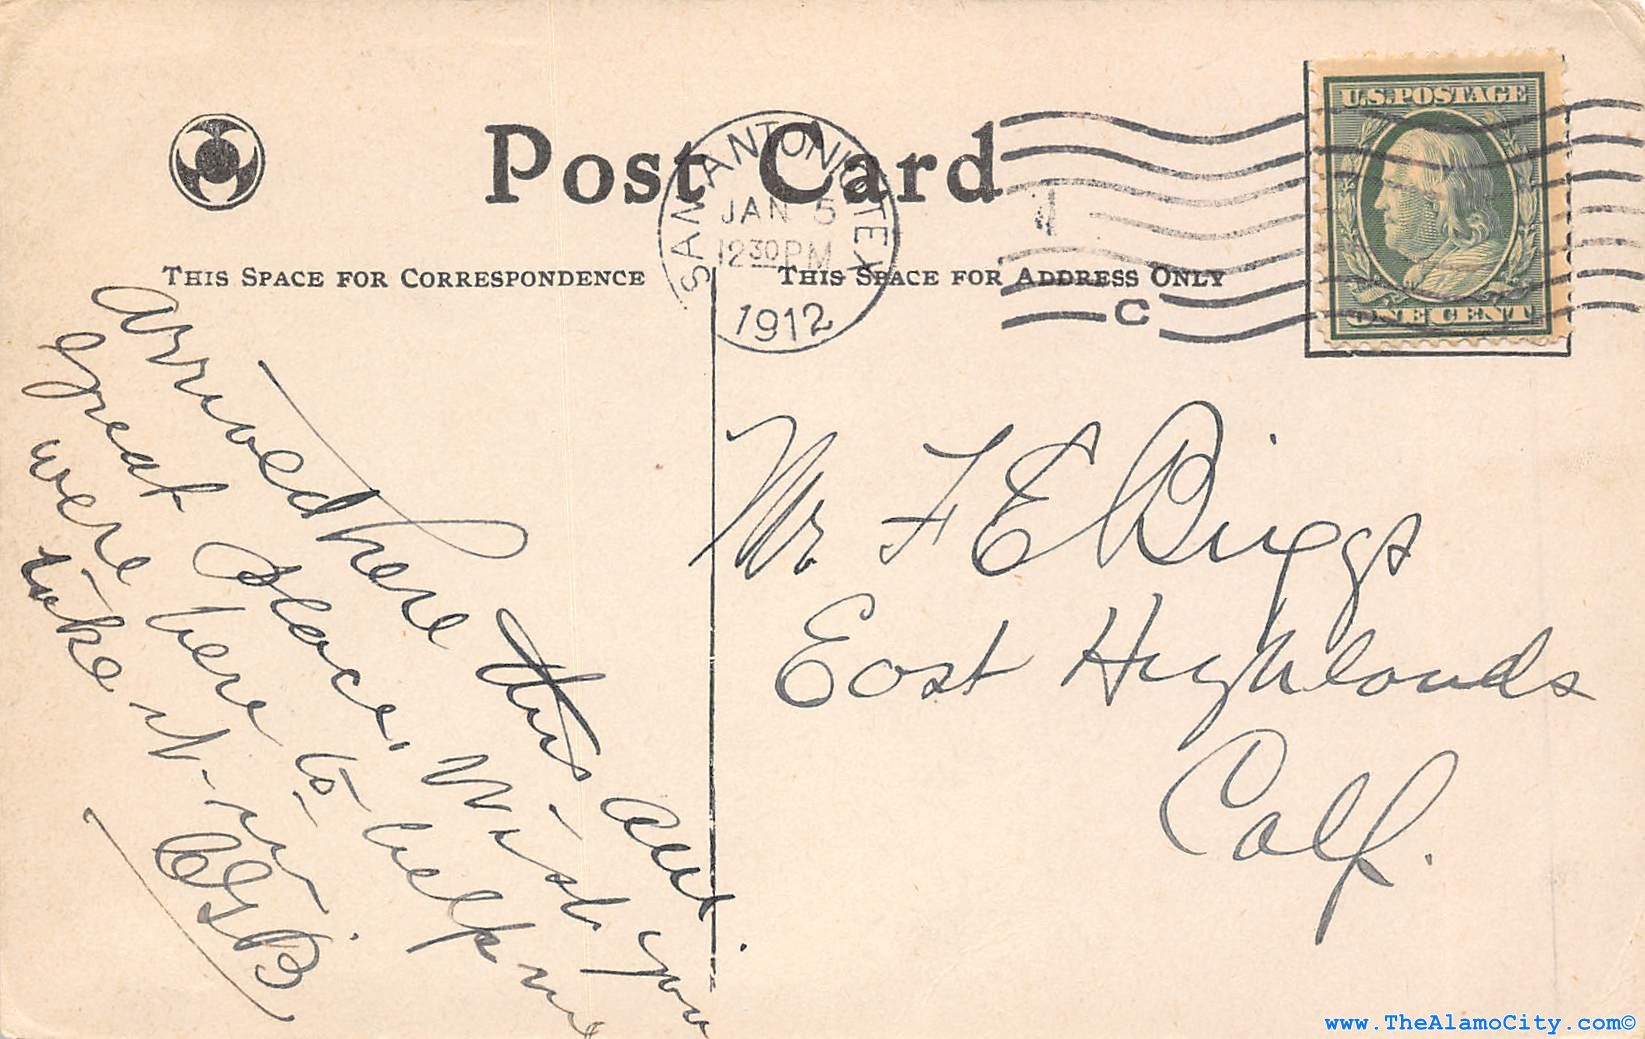 Post Card
THIS SPACE FOR CORRESPONDENCE
THIS SPACE FOR ADDRESS ONLY
SAN ANTONIO, TEX
JAN 5
12 30 PM
1912
C
U.S. POSTAGE
ONE CENT
Arrived here this am.
great Place, Wish you
were here to help me
take it in
CGB
Mr F E Briggs
East Highlands
Calf.
www.TheAlamoCity.com©